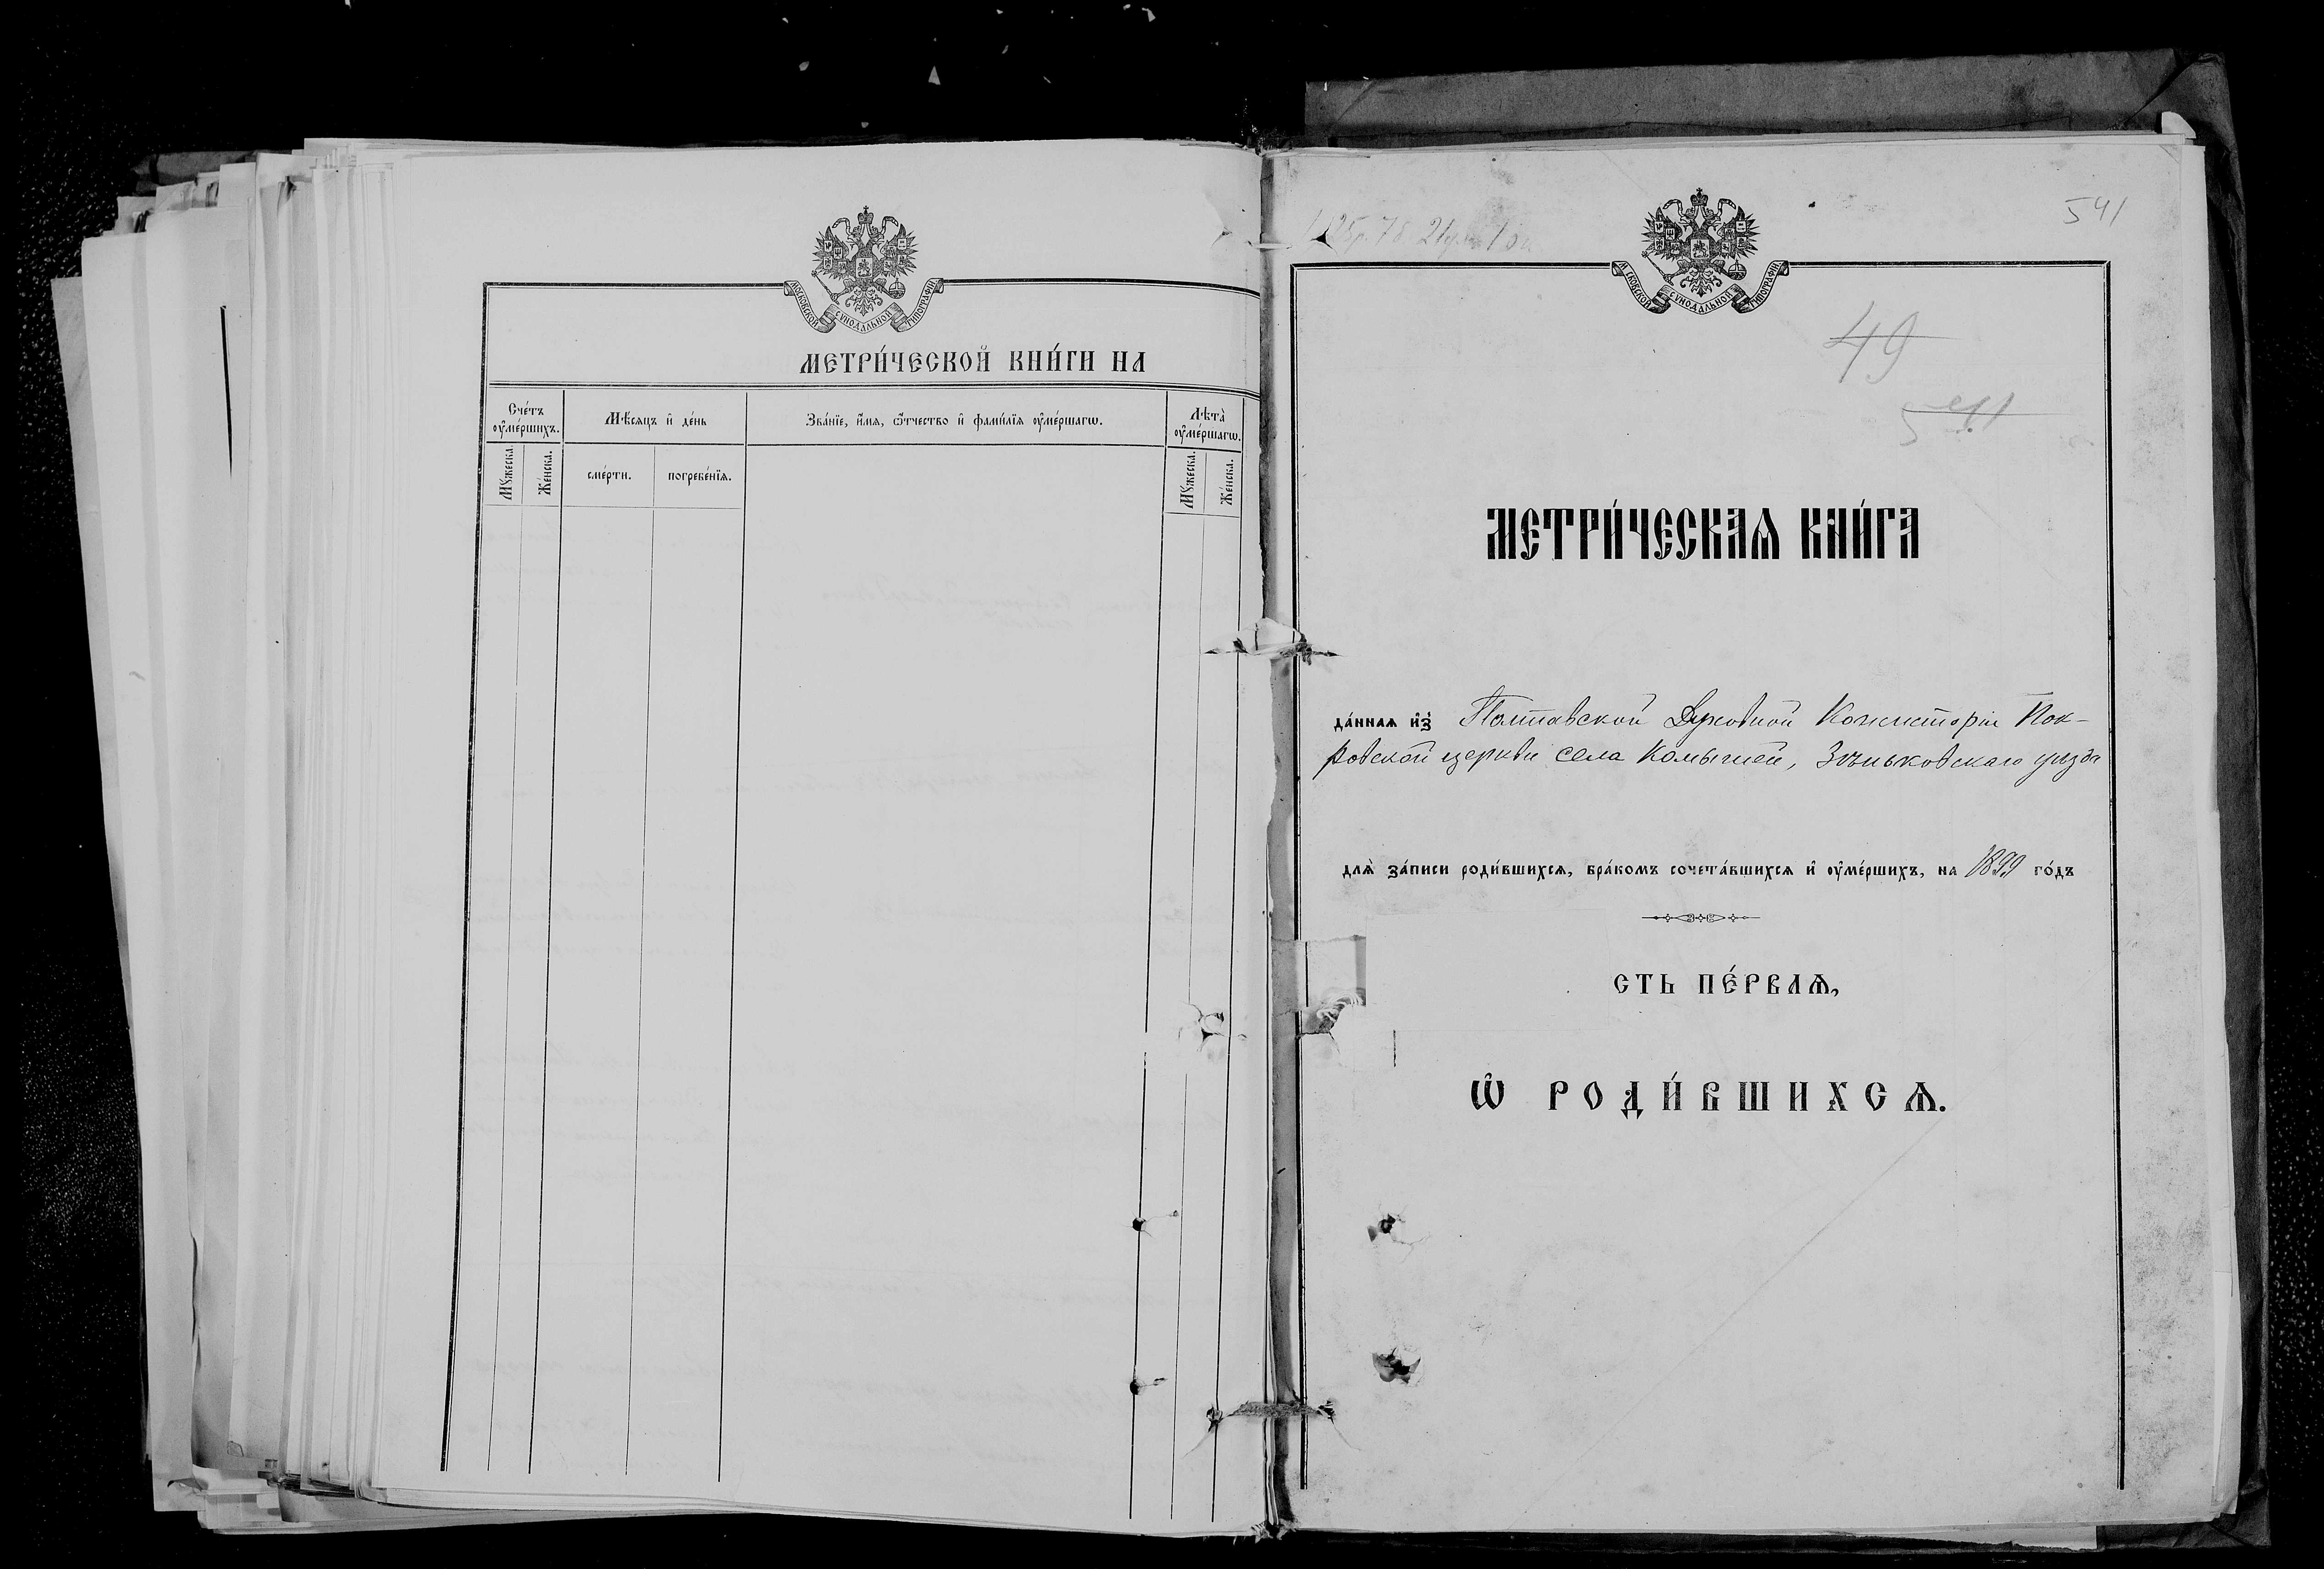 МОСКОВСКОЙ СУНОДАЛЬНОЙ ТИПОГРАФІИ
МЕТРИ́ЧЕСКОЙ КНИ́ГИ НА
Сче́тъ ᲂу҆ме́ршихъ.
Мѣ́сяцъ и҆ де́нь
Зва́нїе, и҆́мѧ, ѻ҆́тчество и҆ фами́лїѧ ᲂу҆ме́ршагѡ.
Лѣ́та ᲂу҆ме́ршагѡ.
Мꙋ́жеска.
Же́нска.
сме́рти.
погребе́нїѧ.
Мꙋ́жеска.
Же́нска.
541
СУНОДАЛЬНОЙ ТИПОГРАФІИ
49
541
МЕТРИ́ЧЕСКАѦ КНИ́ГА
да́ннаѧ и҆зъ Полтавской Духовной Консисторіи Пок-
ровской церкви села Комышей, Зѣньковскаго уѣзда
длѧ̀ за́писи роди́вшихсѧ, бра́комъ сочета́вшихсѧ и҆ ᲂу҆ме́ршихъ, на 1899 го́дъ
СТЬ ПЕ́РВАѦ,
Ѡ҆ РОДИ́ВШИХСѦ.